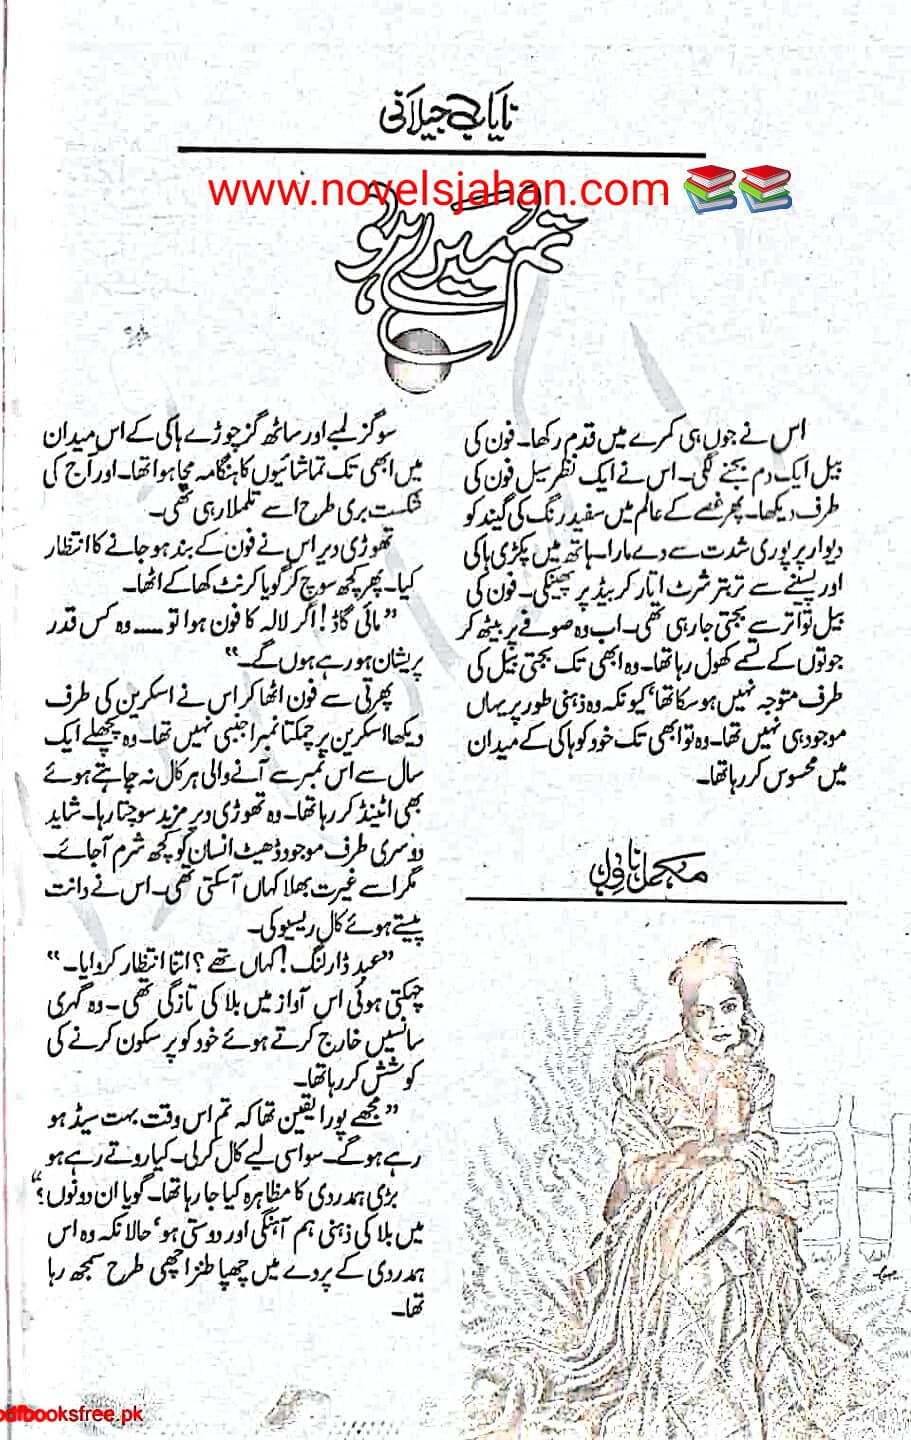 نایاب جیلانی
www.novelsjahan.com
تم میرے ہو
اس نے جوں ہی کمرے میں قدم رکھا۔ فون کی
بیل ایک دم بجنے لگی۔ اس نے ایک نظر سیل فون کی
طرف دیکھا۔ پھر غصے کے عالم میں سفید رنگ کی گیند کو
دیوار پر پوری شدت سے دے مارا۔ ہاتھ میں پکڑی ہاکی
اور پسینے سے تربتر شرٹ اتار کر بیڈ پر پھینکی۔ فون کی
بیل تواتر سے بجتی جا رہی تھی۔ اب وہ صوفے پر بیٹھ کر
جوتوں کے تسمے کھول رہا تھا۔ وہ ابھی تک بجتی بیل کی
طرف متوجہ نہیں ہو سکا تھا، کیونکہ وہ ذہنی طور پر یہاں
موجود ہی نہیں تھا۔ وہ تو ابھی تک خود کو ہاکی کے میدان
میں محسوس کر رہا تھا۔
مکمل ناول
سو گز لمبے اور ساٹھ گز چوڑے ہاکی کے اس میدان
میں ابھی تک تماشائیوں کا ہنگامہ مچا ہوا تھا۔ اور آج کی
شکست بری طرح اسے تلملا رہی تھی۔
تھوڑی دیر اس نے فون کے بند ہو جانے کا انتظار
کیا۔ پھر کچھ سوچ کر گویا کرنٹ کھا کے اٹھا۔
”مائی گاڈ! اگر لالہ کا فون ہوا تو۔۔۔۔ وہ کس قدر
پریشان ہو رہے ہوں گے۔“
پھرتی سے فون اٹھا کر اس نے اسکرین کی طرف
دیکھا اسکرین پر چمکتا نمبر اجنبی نہیں تھا۔ وہ پچھلے ایک
سال سے اس نمبر سے آنے والی ہر کال نہ چاہتے ہوئے
بھی اٹینڈ کر رہا تھا۔ وہ تھوڑی دیر مزید سوچتا رہا۔ شاید
دوسری طرف موجود ڈھیٹ انسان کو کچھ شرم آجائے۔
مگر اسے غیرت بھلا کہاں آسکتی تھی۔ اس نے دانت
پیستے ہوئے کال ریسیو کی۔
”عبد ڈارلنگ! کہاں تھے؟ اتنا انتظار کروایا۔“
چہکتی ہوئی اس آواز میں بلا کی تازگی تھی۔ وہ گہری
سانسیں خارج کرتے ہوئے خود کو پر سکون کرنے کی
کوشش کر رہا تھا۔
”مجھے پورا یقین تھا کہ تم اس وقت بہت سیڈ ہو
رہے ہو گے۔ سو اسی لیے کال کرلی۔ کیا روتے رہے ہو
بڑی ہمدردی کا مظاہرہ کیا جا رہا تھا۔ گویا ان دونوں ؟“
میں بلا کی ذہنی ہم آہنگی اور دوستی ہو، حالانکہ وہ اس
ہمدردی کے پردے میں چھپا طنز اچھی طرح سمجھ رہا
تھا۔
pdfbooksfree.pk